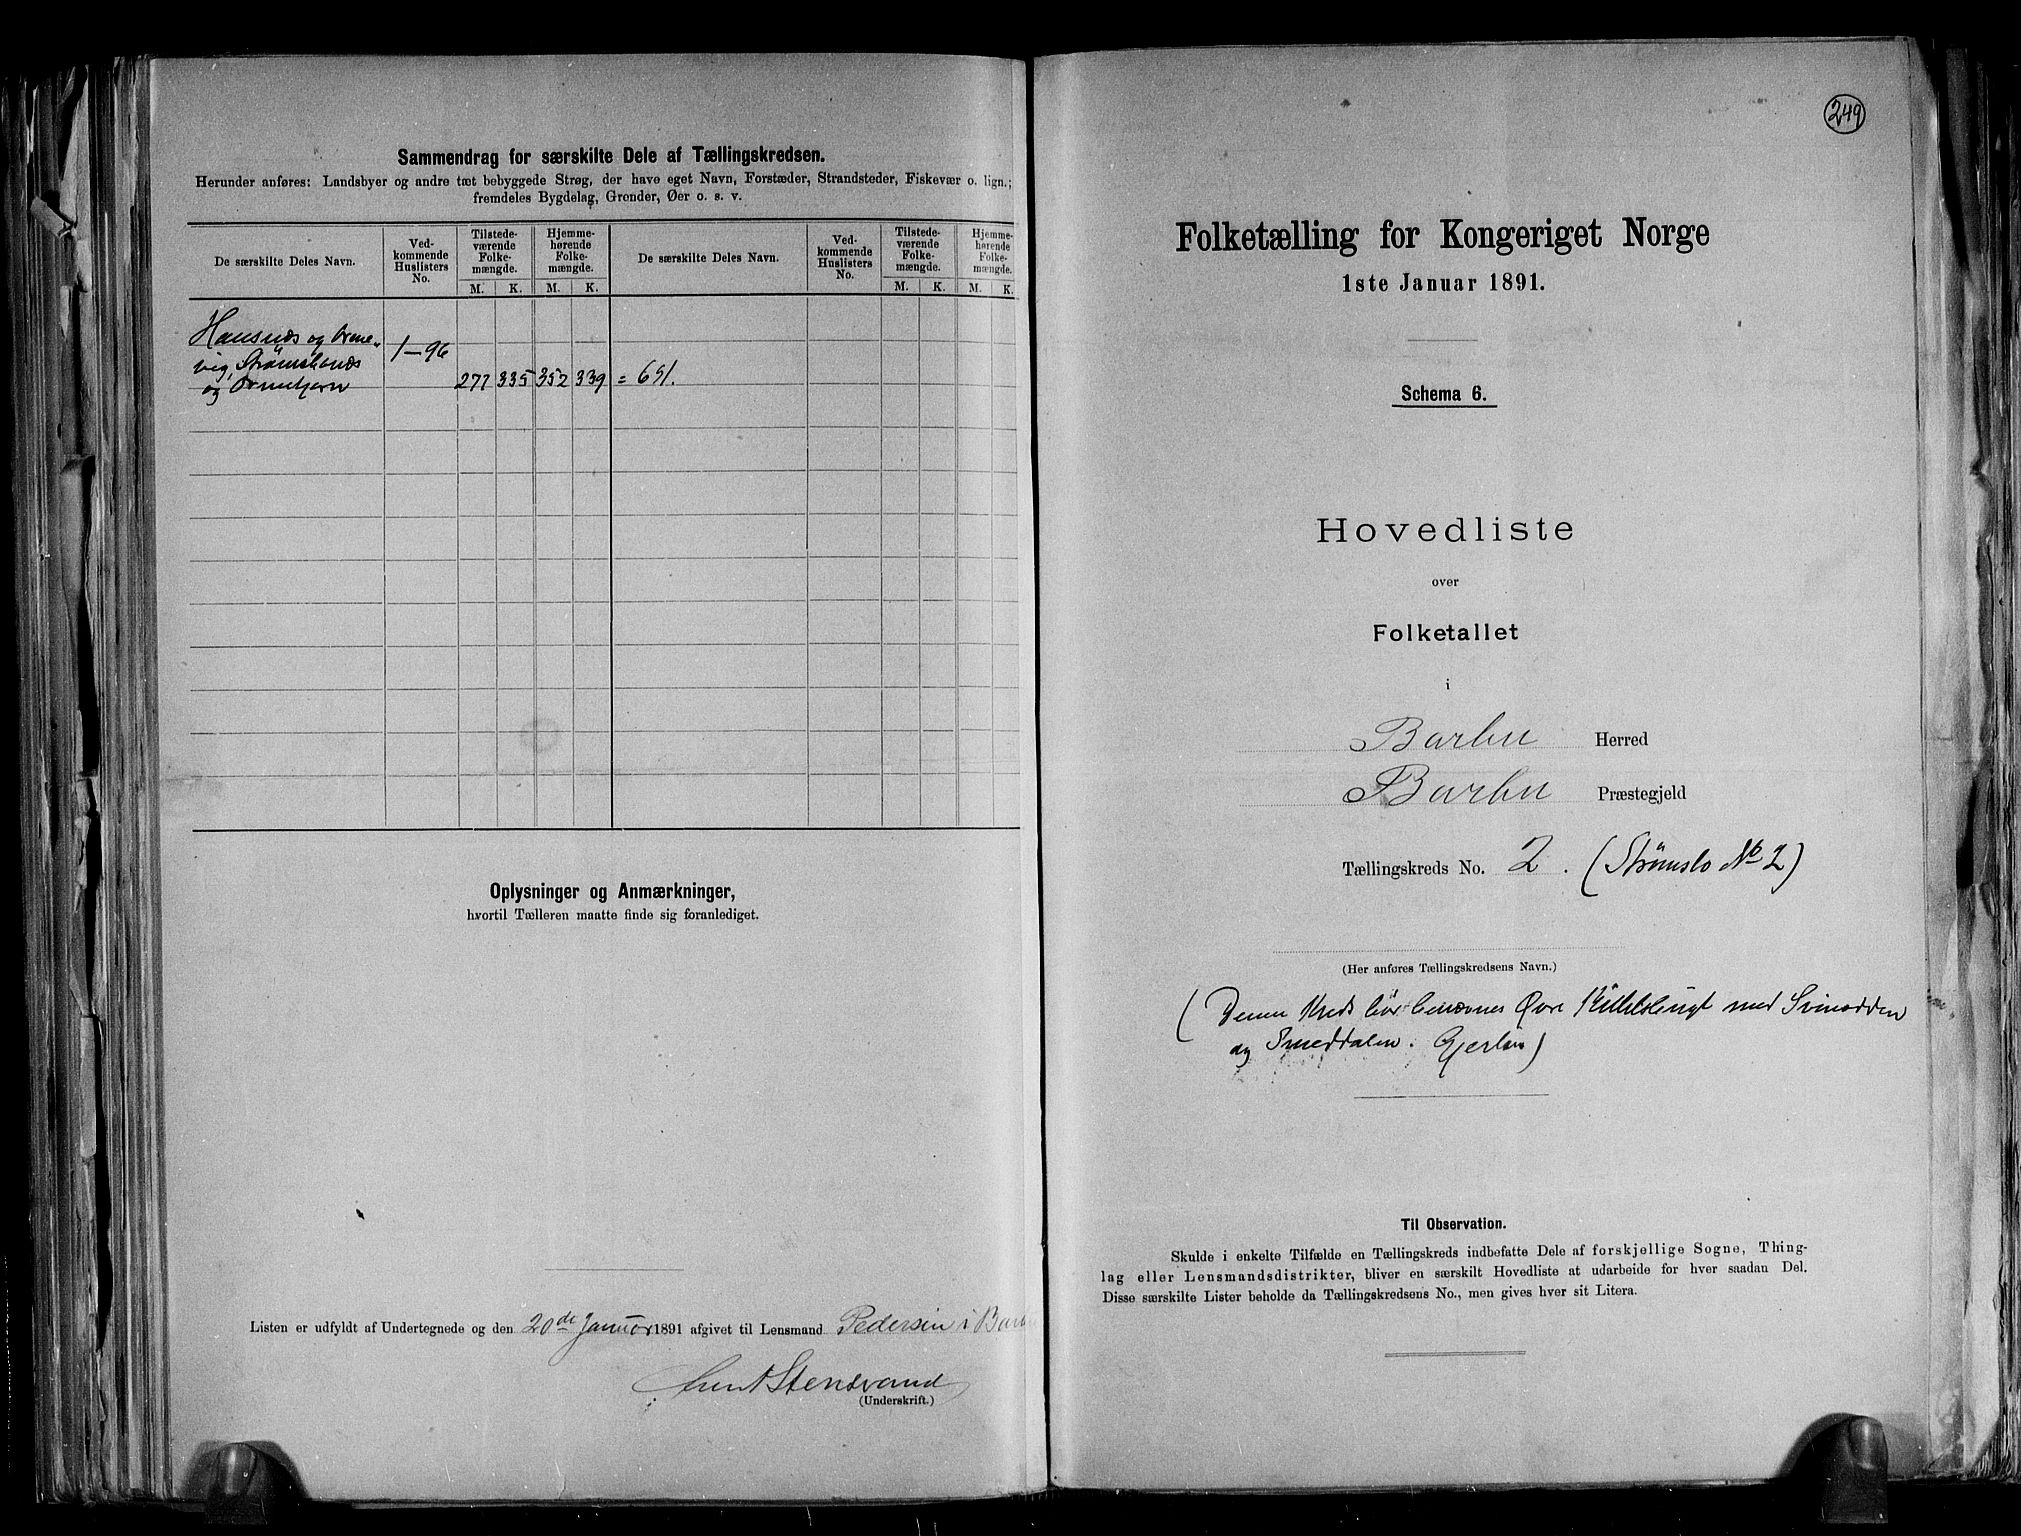 Sammendrag for særskilte Dele af Tællingskredsen.
Herunder anføres: Landsbyer og andre tæt bebyggede Strøg, der have eget Navn, Forstæder, Strandsteder, Fiskevær o. lign.;
fremdeles Bygdelag, Grender, Øer o. s. v.
De særskilte Deles Navn. Ved-kommende Huslisters No. Tilstede-værende Folke-mængde. Hjemme-hørende Folke-mængde. De særskilte Deles Navn. Ved-kommende Huslisters No. Tilstede-værende Folke-mængde. Hjemme-hørende Folke-mængde.
M. K. M. K. M. K. M. K.
Hansnæs og
vig, 1-96
og 277 335 352 339 = 691.
Oplysninger og Anmærkninger,
hvortil Tælleren maatte finde sig foranlediget.
Listen er udfyldt af Undertegnede og den 20de Januar 1891 afgivet til Lensmand Pedersen i Bar
Stensvand
(Underskrift.)
249
Folketælling for Kongeriget Norge
1ste Januar 1891.
Schema 6.
Hovedliste
over
Folketallet
i
Barbu Herred
Barbu Præstegjeld
Tællingskreds No. 2. (Strømsbo No 2)
(Her anføres Tællingskredsens Navn.)
(Denne Kreds bør benævnes Øvre med Svinodden
og Smeddalen.
Til Observation.
Skulde i enkelte Tilfælde en Tællingskreds indbefatte Dele af forskjellige Sogne, Thing-
lag eller Lensmandsdistrikter, bliver en særskilt Hovedliste at udarbeide for hver saadan Del.
Disse særskilte Lister beholde da Tællingskredsens No., men gives hver sit Litera.